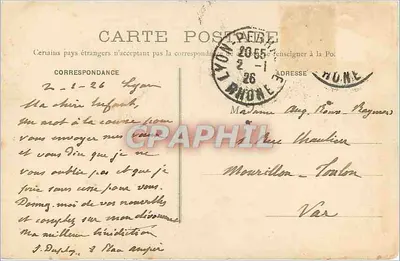 CARTE POSTALE
Certains pays étrangers n'acceptant pas la correspondance se renseigner à la Poste
CORRESPONDANCE
ADRESSE
LYON
20 55
2 - 1
26
RHONE
RHONE
2-1-26 Lyon
Ma chère enfant,
Un mot à la course pour
vous envoyer mes vœux
et vous dire que je ne
vous oublie pas et que je
prie sans cesse pour vous.
Donnez moi de vos nouvelles
et comptez sur mon
Ma meilleure bénédiction
Madame Aug.
Mourillon - Toulon
Var
CPAPHIL.com